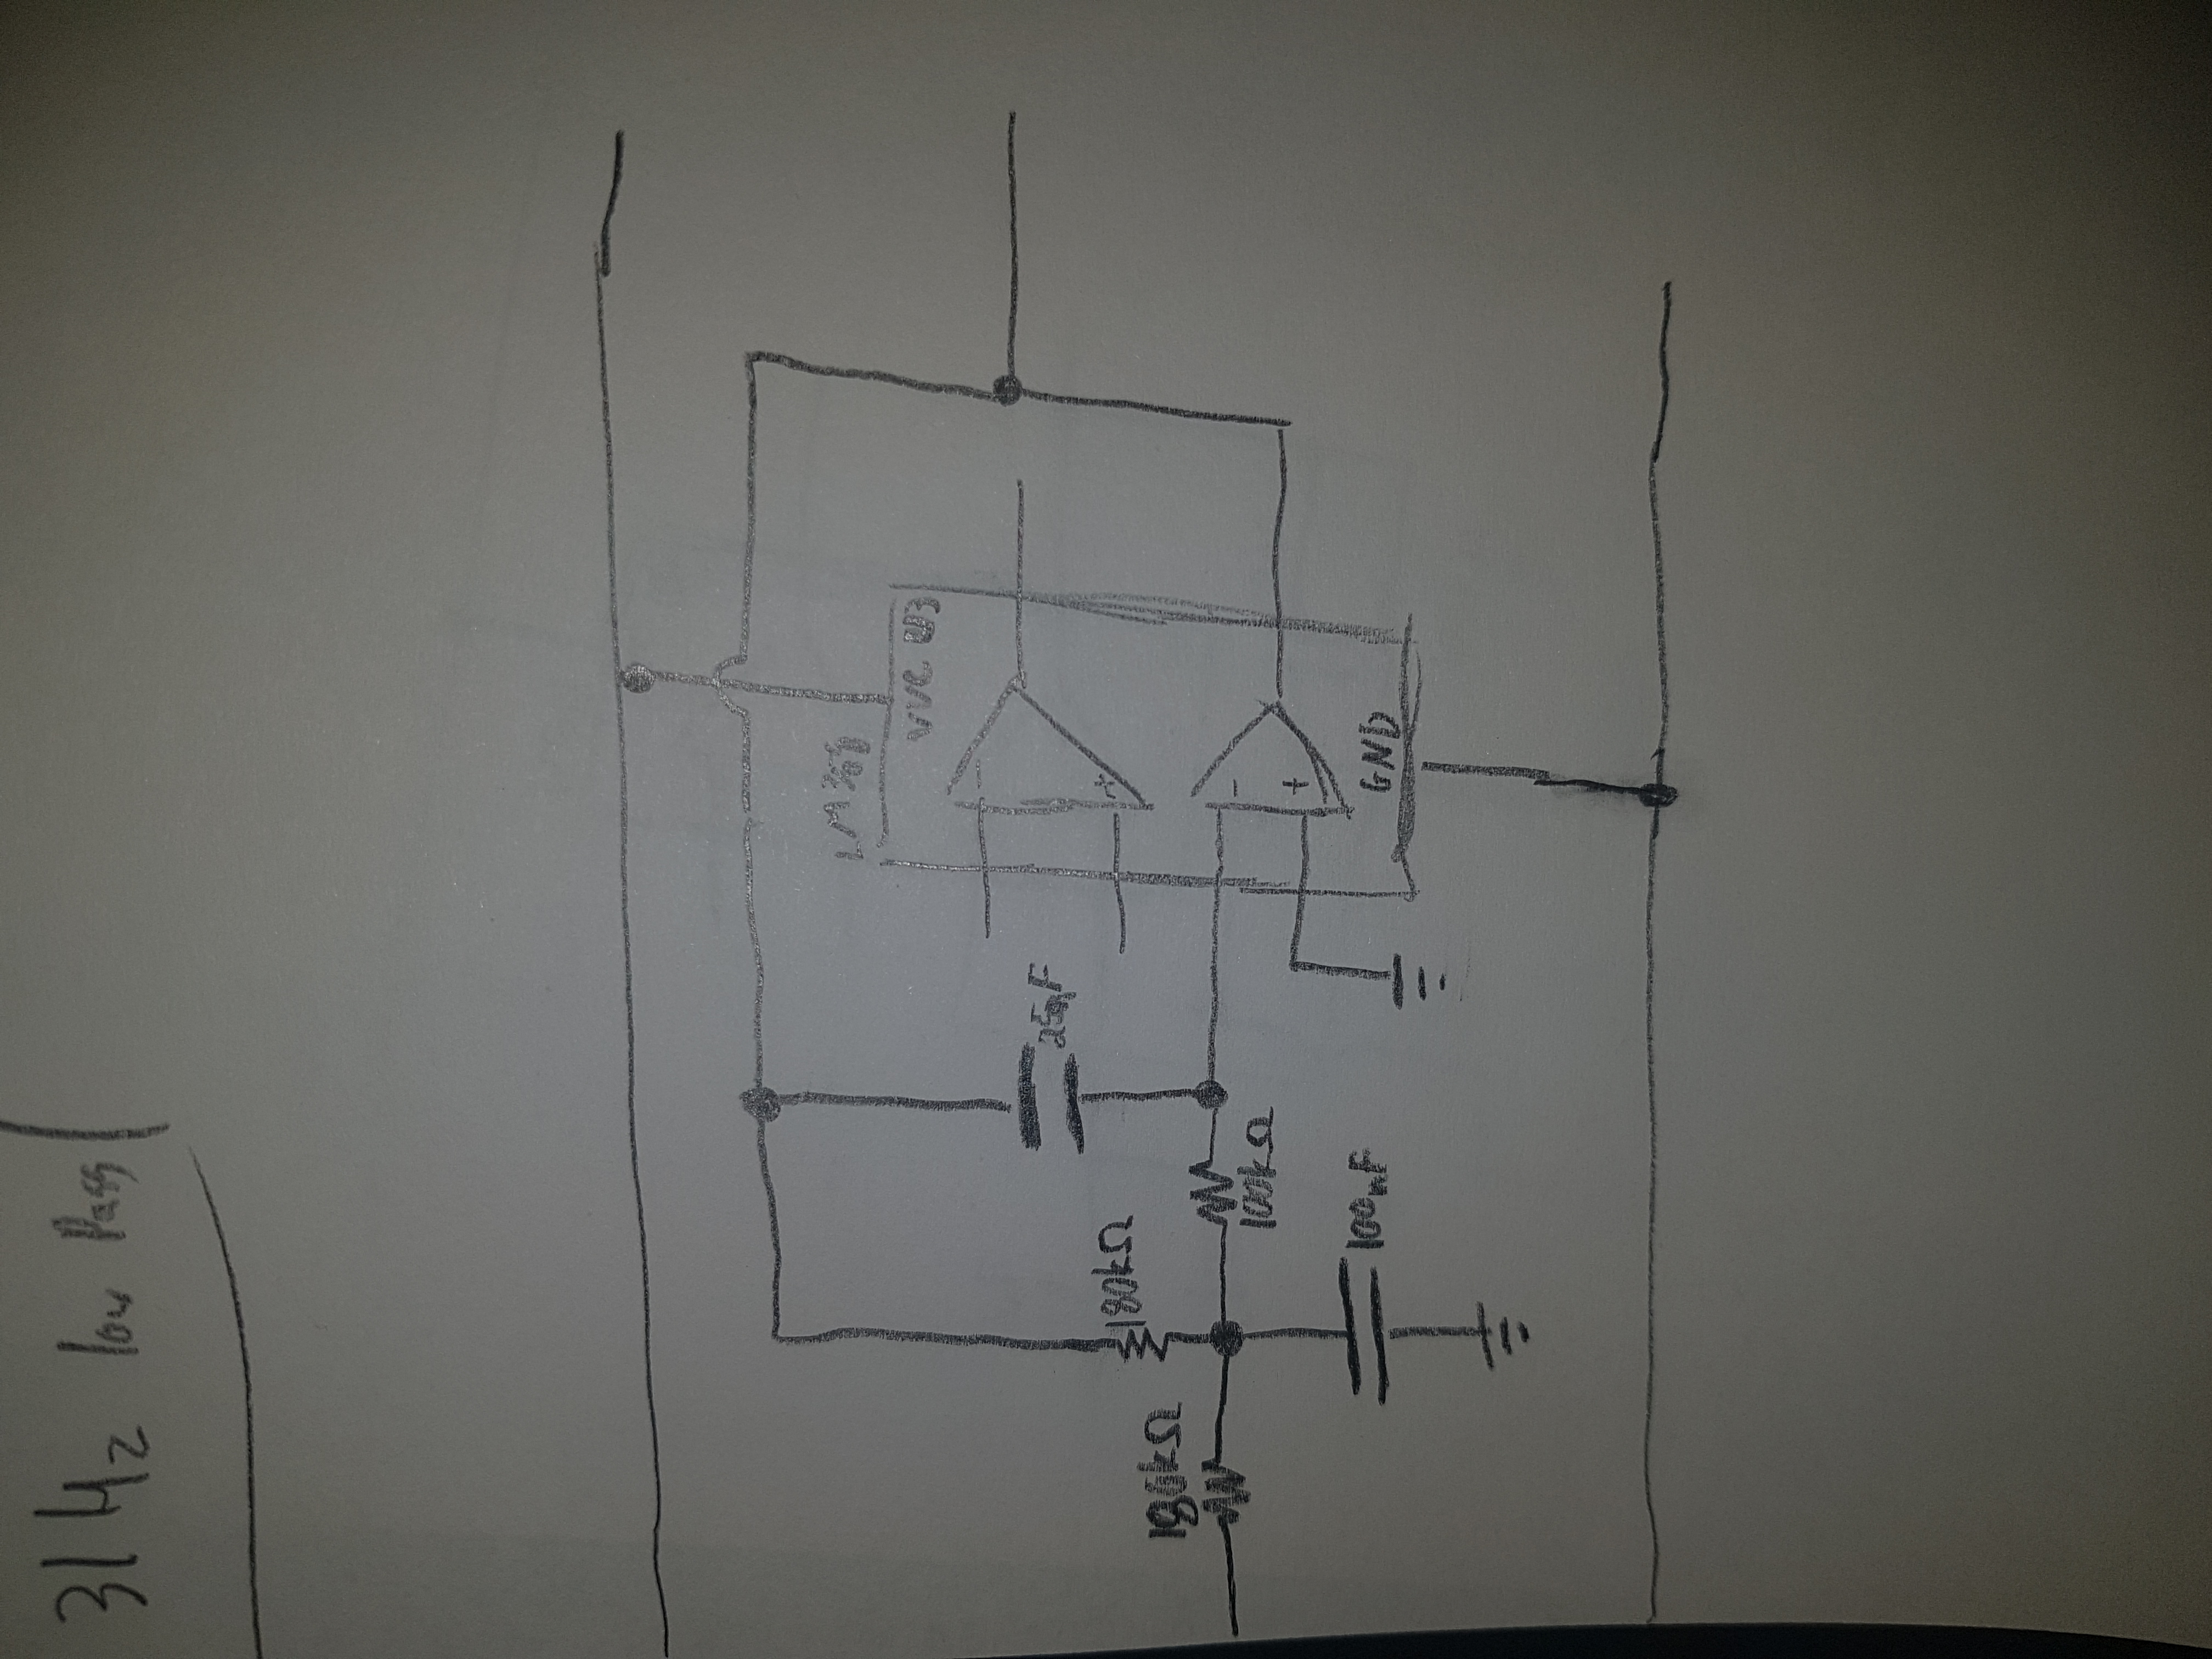 31 Hz low Pass
LM358
VVC U3
-
+
180kΩ
25nF
180kΩ
100kΩ
-
+
100nF
GND